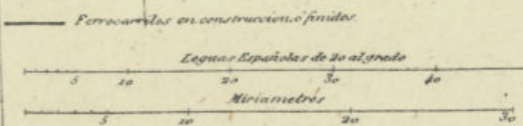 Ferrocarriles en construccion, ó finidos.
Leguas Españolas de 20 al grado
5 10 20 30 40
Miriametros
5 10 20 30